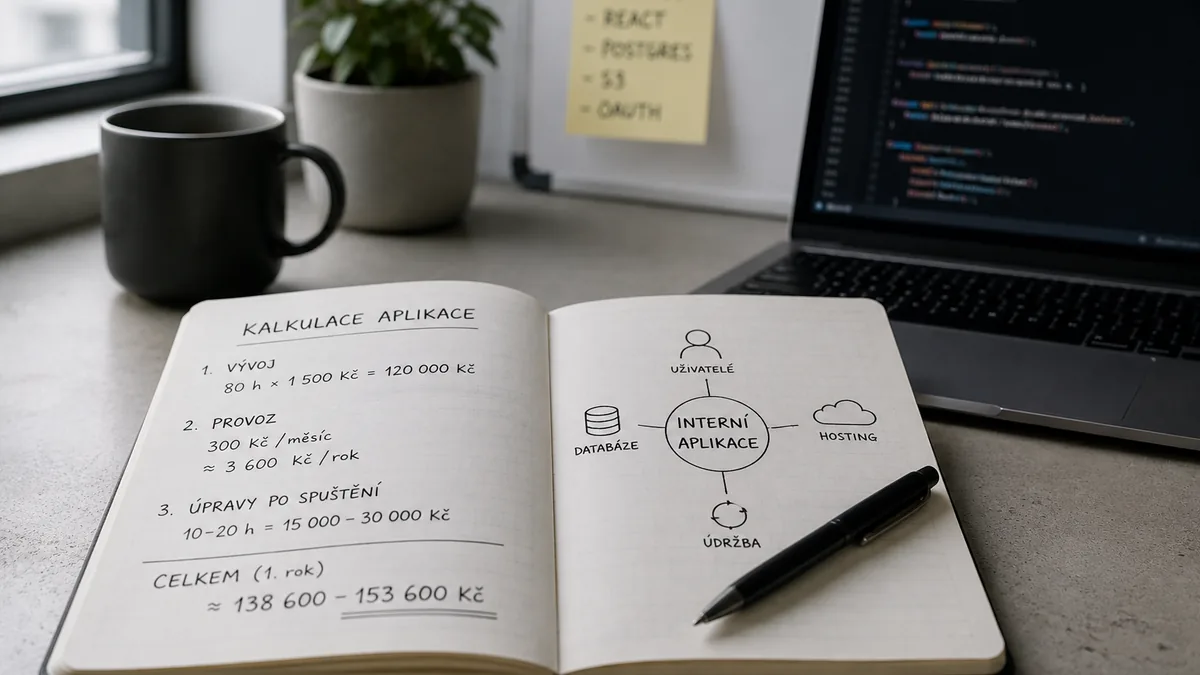 - REACT
- POSTGRES
- S3
- OAUTH
KALKULACE APLIKACE
1. VÝVOJ
80 h × 1 500 Kč = 120 000 Kč
2. PROVOZ
300 Kč / měsíc
≈ 3 600 Kč / rok
3. ÚPRAVY PO SPUŠTĚNÍ
10–20 h = 15 000 – 30 000 Kč
CELKEM (1. rok)
≈ 138 600 – 153 600 Kč
UŽIVATELÉ
DATABÁZE
INTERNÍ
APLIKACE
HOSTING
ÚDRŽBA